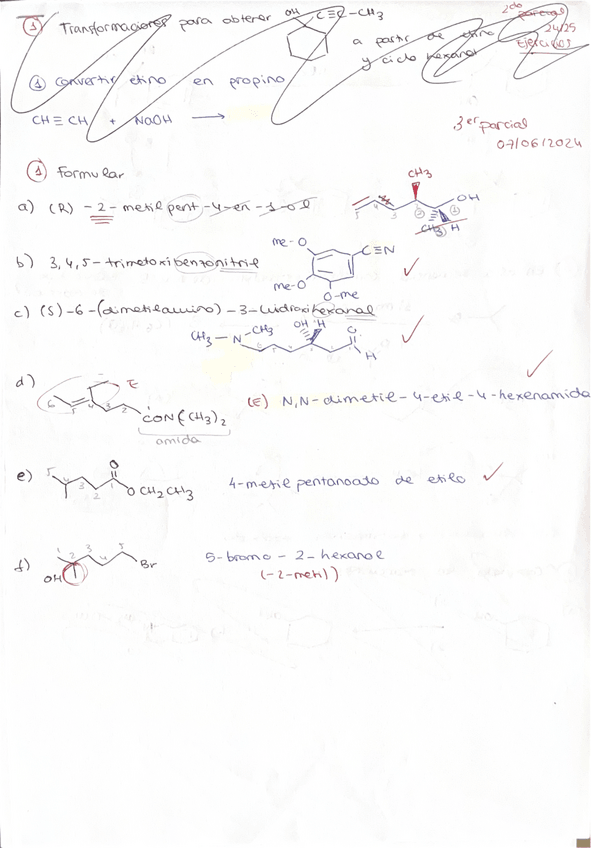 ① Transformaciones para obtener OH C≡C-CH3 a partir de etino
y ciclo hexanol
2do parcial
24/25
Ejercicios
① Convertir etino en propino
CH≡CH + NaOH →
3er parcial
07/06/2024
① Formular
a) (R) -2-metil pent-4-en-1-ol
CH3
OH
5 4 3 2 1
CH3 H
b) 3,4,5-trimetoxibenzonitril
me-O
C≡N
me-O
O-me
✓
c) (S)-6-(dimetilamino)-3-hidroxihexanal
CH3-N-CH3 OH H O H
✓
d) E
6 5 4 3 2
CON(CH3)2
amida
(E) N,N-dimetil-4-etil-4-hexenamida
✓
e) 5 4 3 2 1 O
OCH2CH3
4-metilpentanoato de etilo ✓
f) 1 2 3 4 5
OH Br
5-bromo-2-hexanol
(-2-metil)